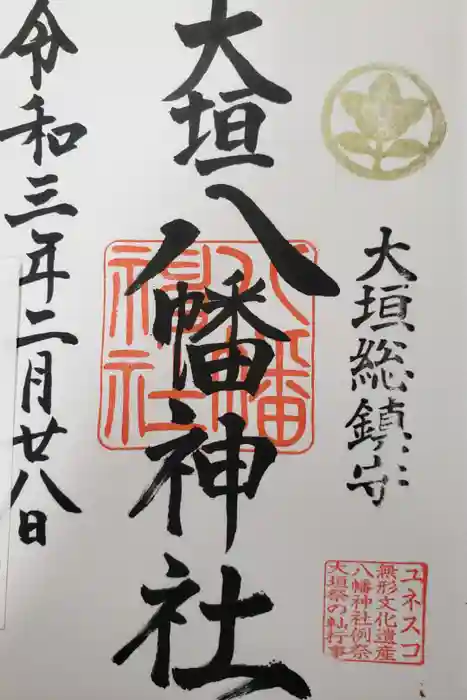 大垣総鎮守
ユネスコ
無形文化遺産
八幡神社例祭
大垣祭の軕行事
大垣八幡神社
八幡神社
令和三年二月廿八日